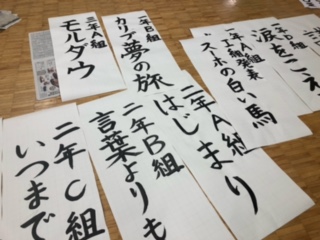 三年A組
モルダウ
年B組
カリブ夢の旅
スーホの白い馬
年D組
涙をこえ
二年A組
はじまり
二年B組
言葉よりも
二年C組
いつまで